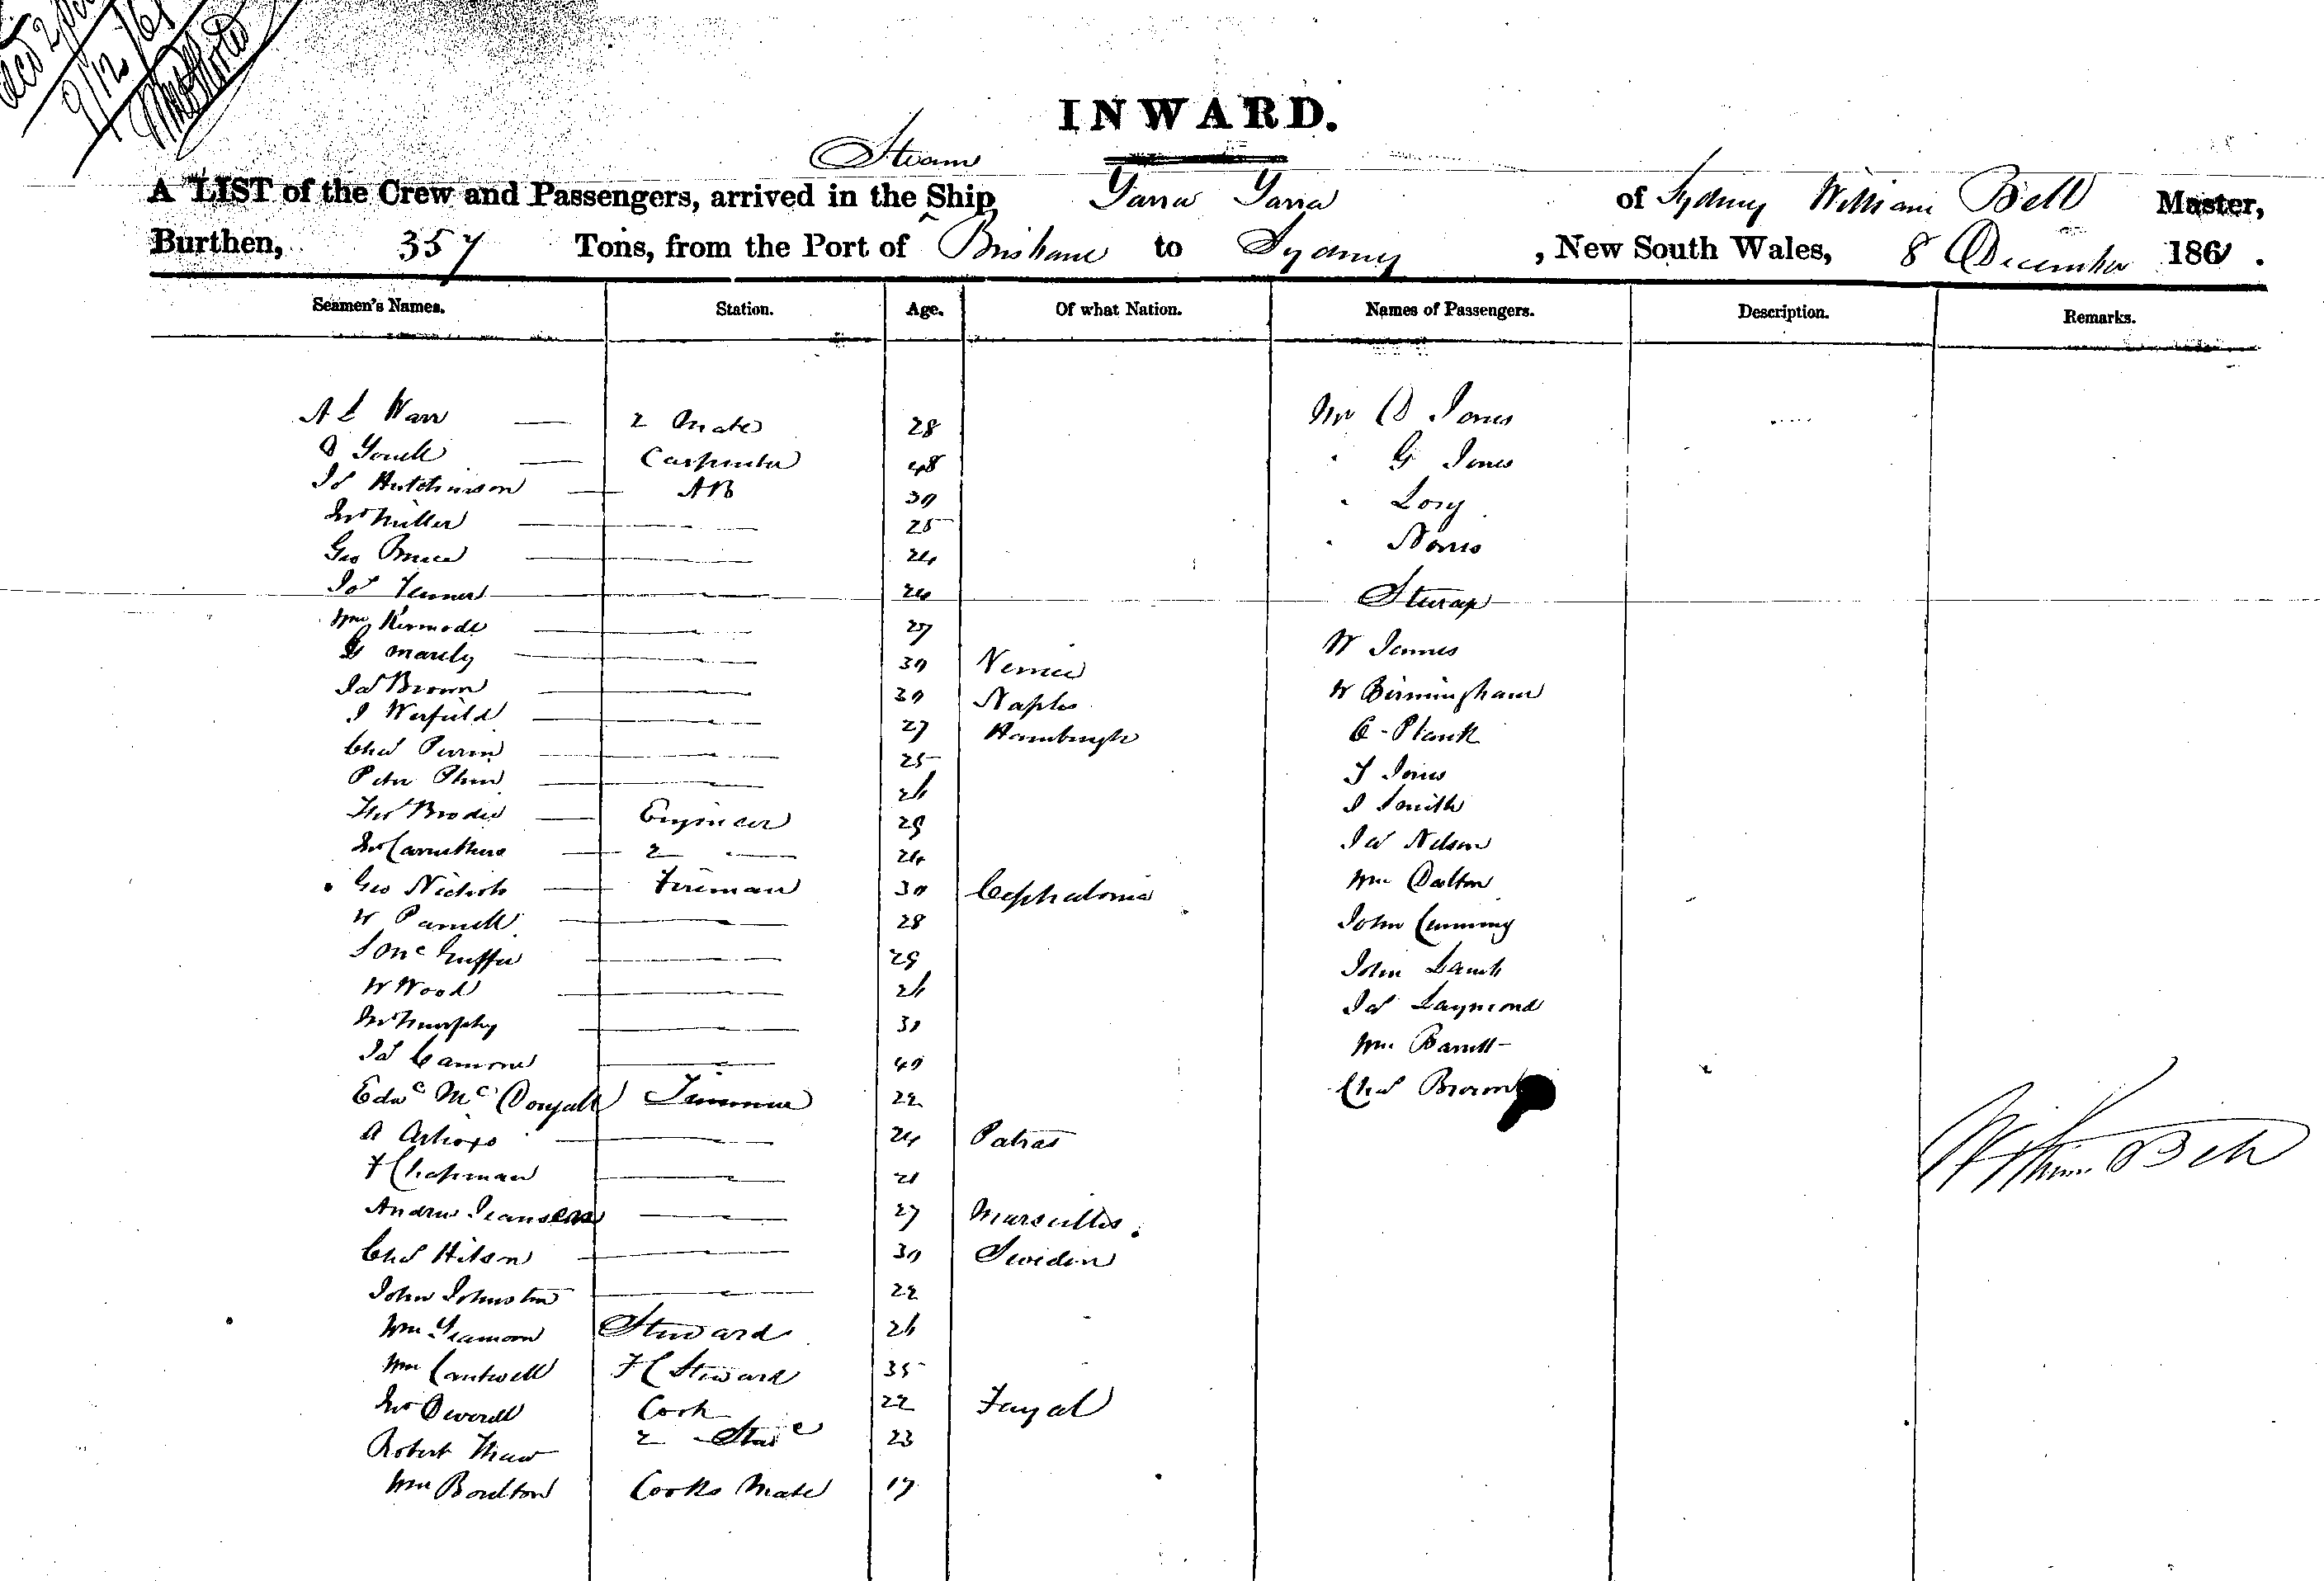 9/12/61
INWARD.
Steam
A LIST of the Crew and Passengers, arrived in the Ship Yarra Yarra of Sydney William Bell Master,
Burthen, 357 Tons, from the Port of Brisbane to Sydney, New South Wales, 8 December 1861.
Seamen's Names. Station. Age. Of what Nation. Names of Passengers. Description. Remarks.
A L Warr — 2 Mate 28 Mr D Jones
D Youll — Carpenter 48 " G Jones
Js Hutchinson — AB 30 " Lory
Jno Miller — 25 " Norris
Geo Bruce — 24
Jos Fenner — 24 Steerage
Wm Kermode — 27 W James
G Marely — 30 Venice
Jas Brown — 30 Naples W Birmingham
J Warfield — 27 Hamburgh C Plank
Chas Perrin — 25 T Jones
Peter — 26 J Smith
Thos Brodie — Engineer 29
Jno Carruthers — 2 — 24 Jas Nelson
Geo Nichols — Fireman 30 Cephalonia Wm Dalton
W Parnell — 28 John Cumming
J McGuffie — 29 John Lamb
W Wood — 26 Jas Laymond
Jno Murphy — 30 Wm Barrett
Js Camone — 40
Edwd McDougall Trimmer 22 Chas Brown
A — 24 Patras William Bell
F Chapman — 21
Andrew Jeansen — 27 Marseilles
Chas Hilson — 30 Sweden
John Johnston — 22
Wm Yeamoon Steward 26
Wm Cantwell F C Steward 35
Jno Deverell Cook 22 Fayal
Robert Thaw 2 Stewd 23
Wm Boulton Cooks Mate 17